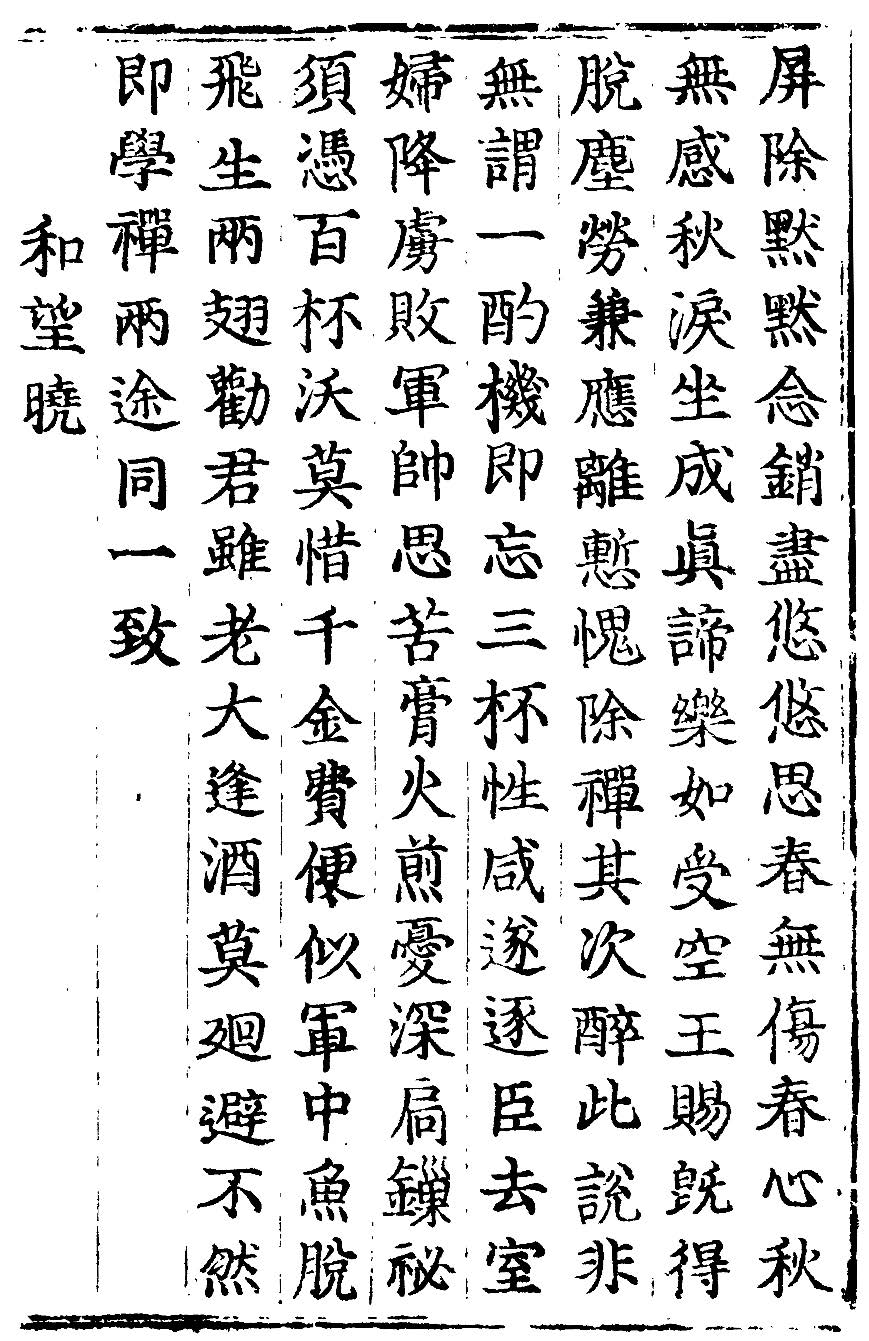 屏除默默念銷盡悠悠思春無傷春心秋
無感秋淚坐成眞諦樂如受空王賜既得
脫塵勞兼應離慙愧除禪其次醉此說非
無謂一酌機即忘三杯性咸遂逐臣去室
婦降虜敗軍帥思苦膏火煎憂深扃鏁祕
須憑百杯沃莫惜千金費便似軍中魚脫
飛生兩翅勸君雖老大逢酒莫廻避不然
即學禪兩途同一致
和望曉